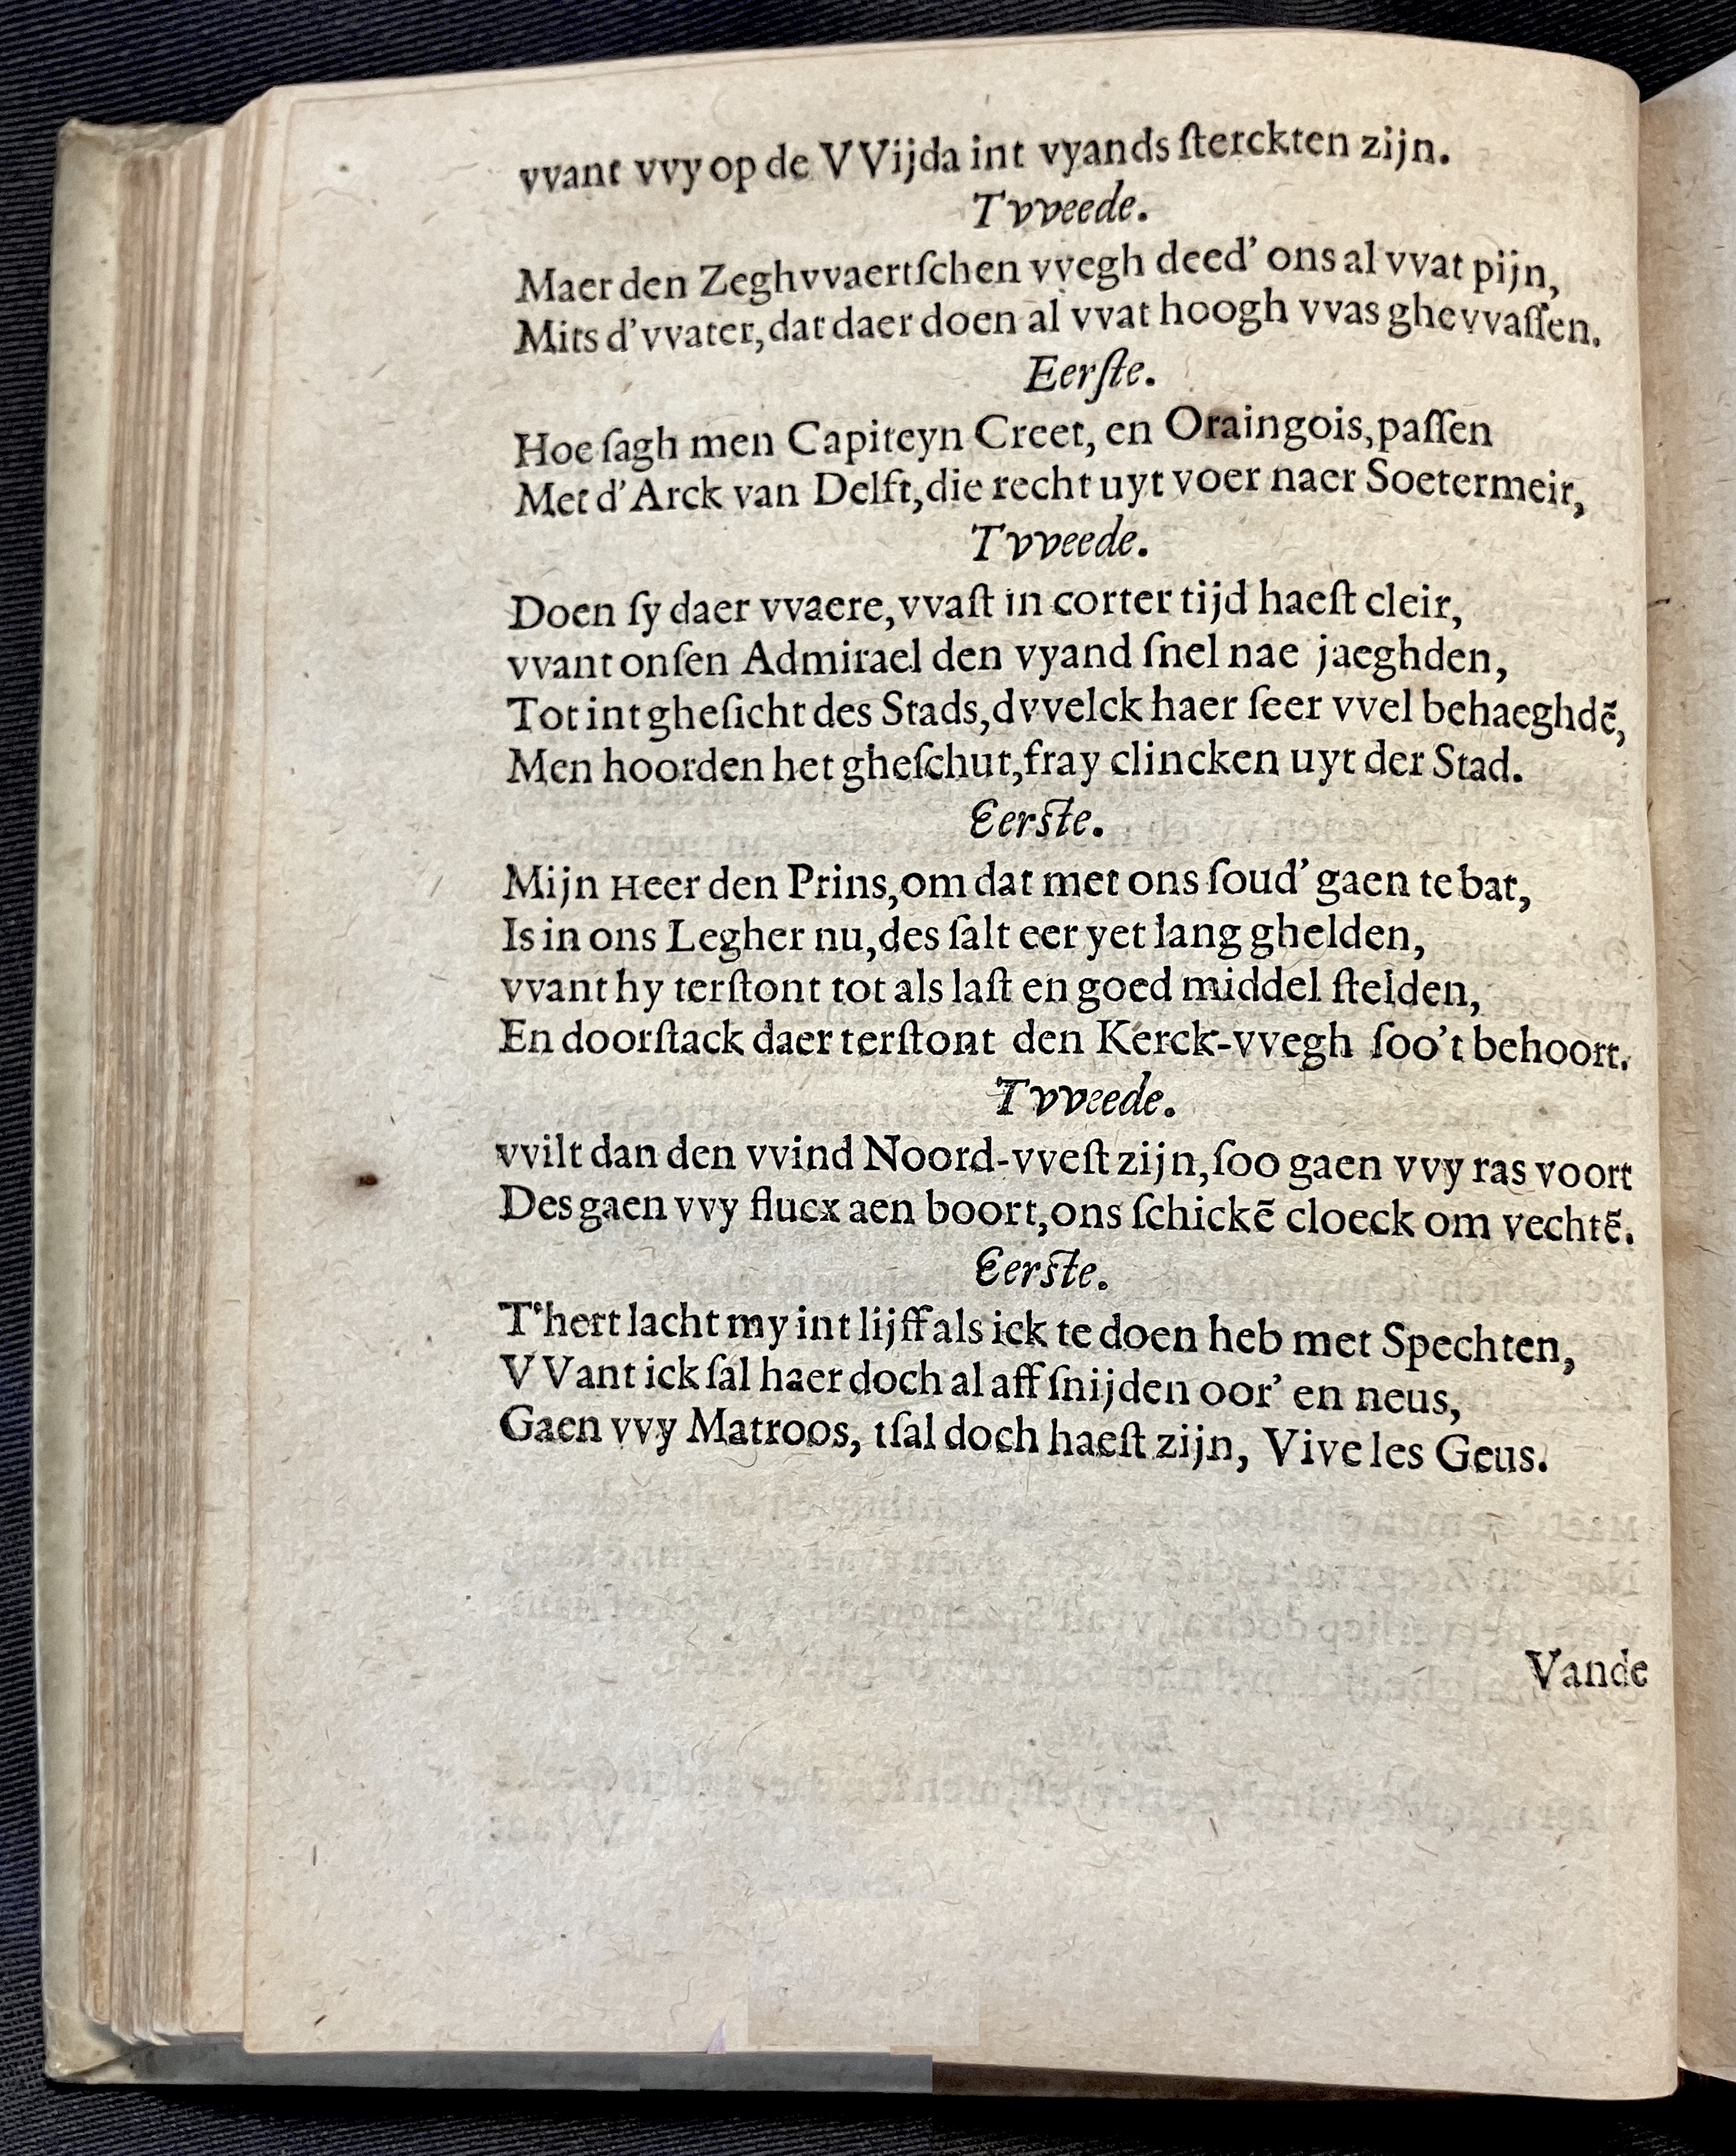 vvant vvy op de VVijda int vyands ſterckten zijn.
Tvveede.
Maer den Zeghvvaertſchen vvegh deed' ons al vvat pijn,
Mits d'vvater, dat daer doen al vvat hoogh vvas ghevvaſſen.
Eerſte.
Hoe ſagh men Capiteyn Creet, en Oraingois, paſſen
Met d'Arck van Delft, die recht uyt voer naer Soetermeir,
Tvveede.
Doen ſy daer vvaere, vvaſt in corter tijd haeſt cleir,
vvant onſen Admirael den vyand ſnel nae jaeghden,
Tot int gheſicht des Stads, dvvelck haer ſeer vvel behaeghdē,
Men hoorden het gheſchut, fray clincken uyt der Stad.
Eerſte.
Mijn Heer den Prins, om dat met ons ſoud' gaen te bat,
Is in ons Legher nu, des ſalt eer yet lang ghelden,
vvant hy terſtont tot als laſt en goed middel ſtelden,
En doorſtack daer terſtont den Kerck-vvegh ſoo't behoort.
Tvveede.
vvilt dan den vvind Noord-vveſt zijn, ſoo gaen vvy ras voort
Des gaen vvy flucx aen boort, ons ſchickē cloeck om vechtē.
Eerſte.
T'hert lacht my int lijff als ick te doen heb met Spechten,
VVant ick ſal haer doch al aff ſnijden oor' en neus,
Gaen vvy Matroos, tſal doch haeſt zijn, Vive les Geus.
Vande